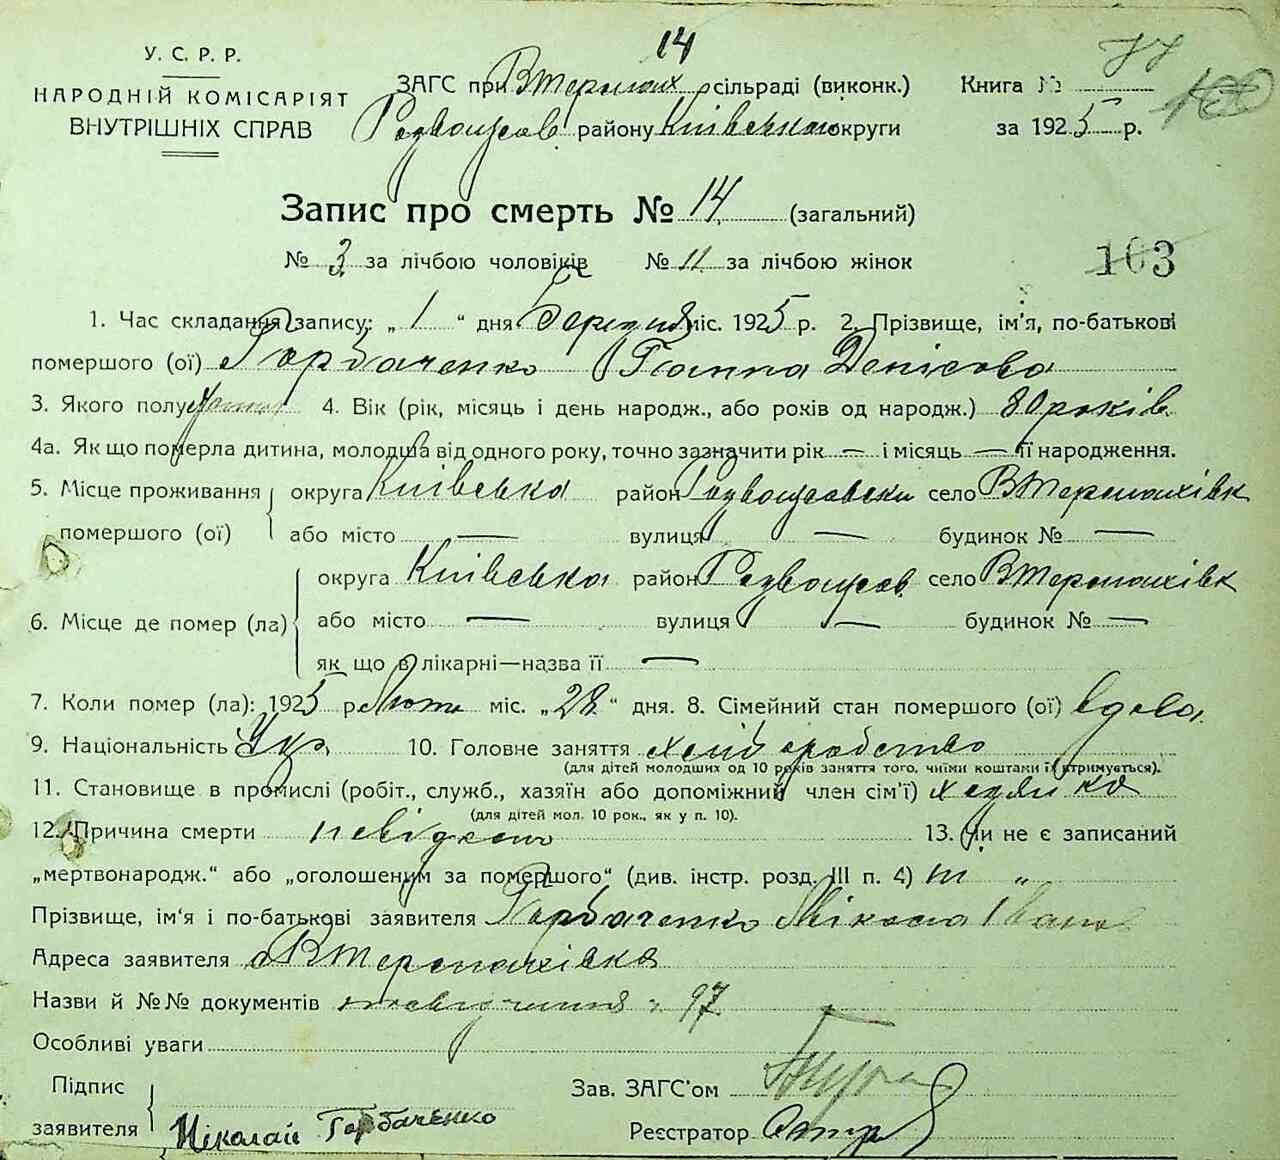 14
У. С. Р. Р.
НАРОДНІЙ КОМІСАРІЯТ
ВНУТРІШНІХ СПРАВ
ЗАГС при сільраді (виконк.)
району Київської округи
Книга № 77
за 1925 р.
Запис про смерть № 14 (загальний)
№ 3 за лічбою чоловіків № 11 за лічбою жінок
103
1. Час складання запису: „1“ дня Березня міс. 1925 р. 2. Прізвище, ім'я, по-батькові
помершого (ої) Горбаченко Ганна Денісова
3. Якого полу 4. Вік (рік, місяць і день народж., або років од народж.) 80 років
4а. Як що померла дитина, молодша від одного року, точно зазначити рік — і місяць — її народження.
5. Місце проживання помершого (ої) округа Київська район село
або місто — вулиця — будинок № —
6. Місце де помер (ла) округа Київська район село
або місто — вулиця — будинок № —
як що в лікарні—назва її —
7. Коли помер (ла): 1925 р. міс. „28“ дня. 8. Сімейний стан помершого (ої) вдова
9. Національність Укр. 10. Головне заняття хліборобство
(для дітей молодших од 10 років заняття того, чиїми коштами їх втримується).
11. Становище в промислі (робіт., служб., хазяїн або допоміжний член сім'ї)
(для дітей мол. 10 рок., як у п. 10).
12. Причина смерти невідомо 13. Чи не є записаний
„мертвонародж.“ або „оголошеним за помершого“ (див. інстр. розд. III п. 4) ні „
Прізвище, ім'я і по-батькові заявителя Горбаченко Мікола
Адреса заявителя
Назви й №№ документів 97
Особливі уваги
Підпис заявителя Ніколай Горбаченко
Зав. ЗАГС'ом
Реєстратор